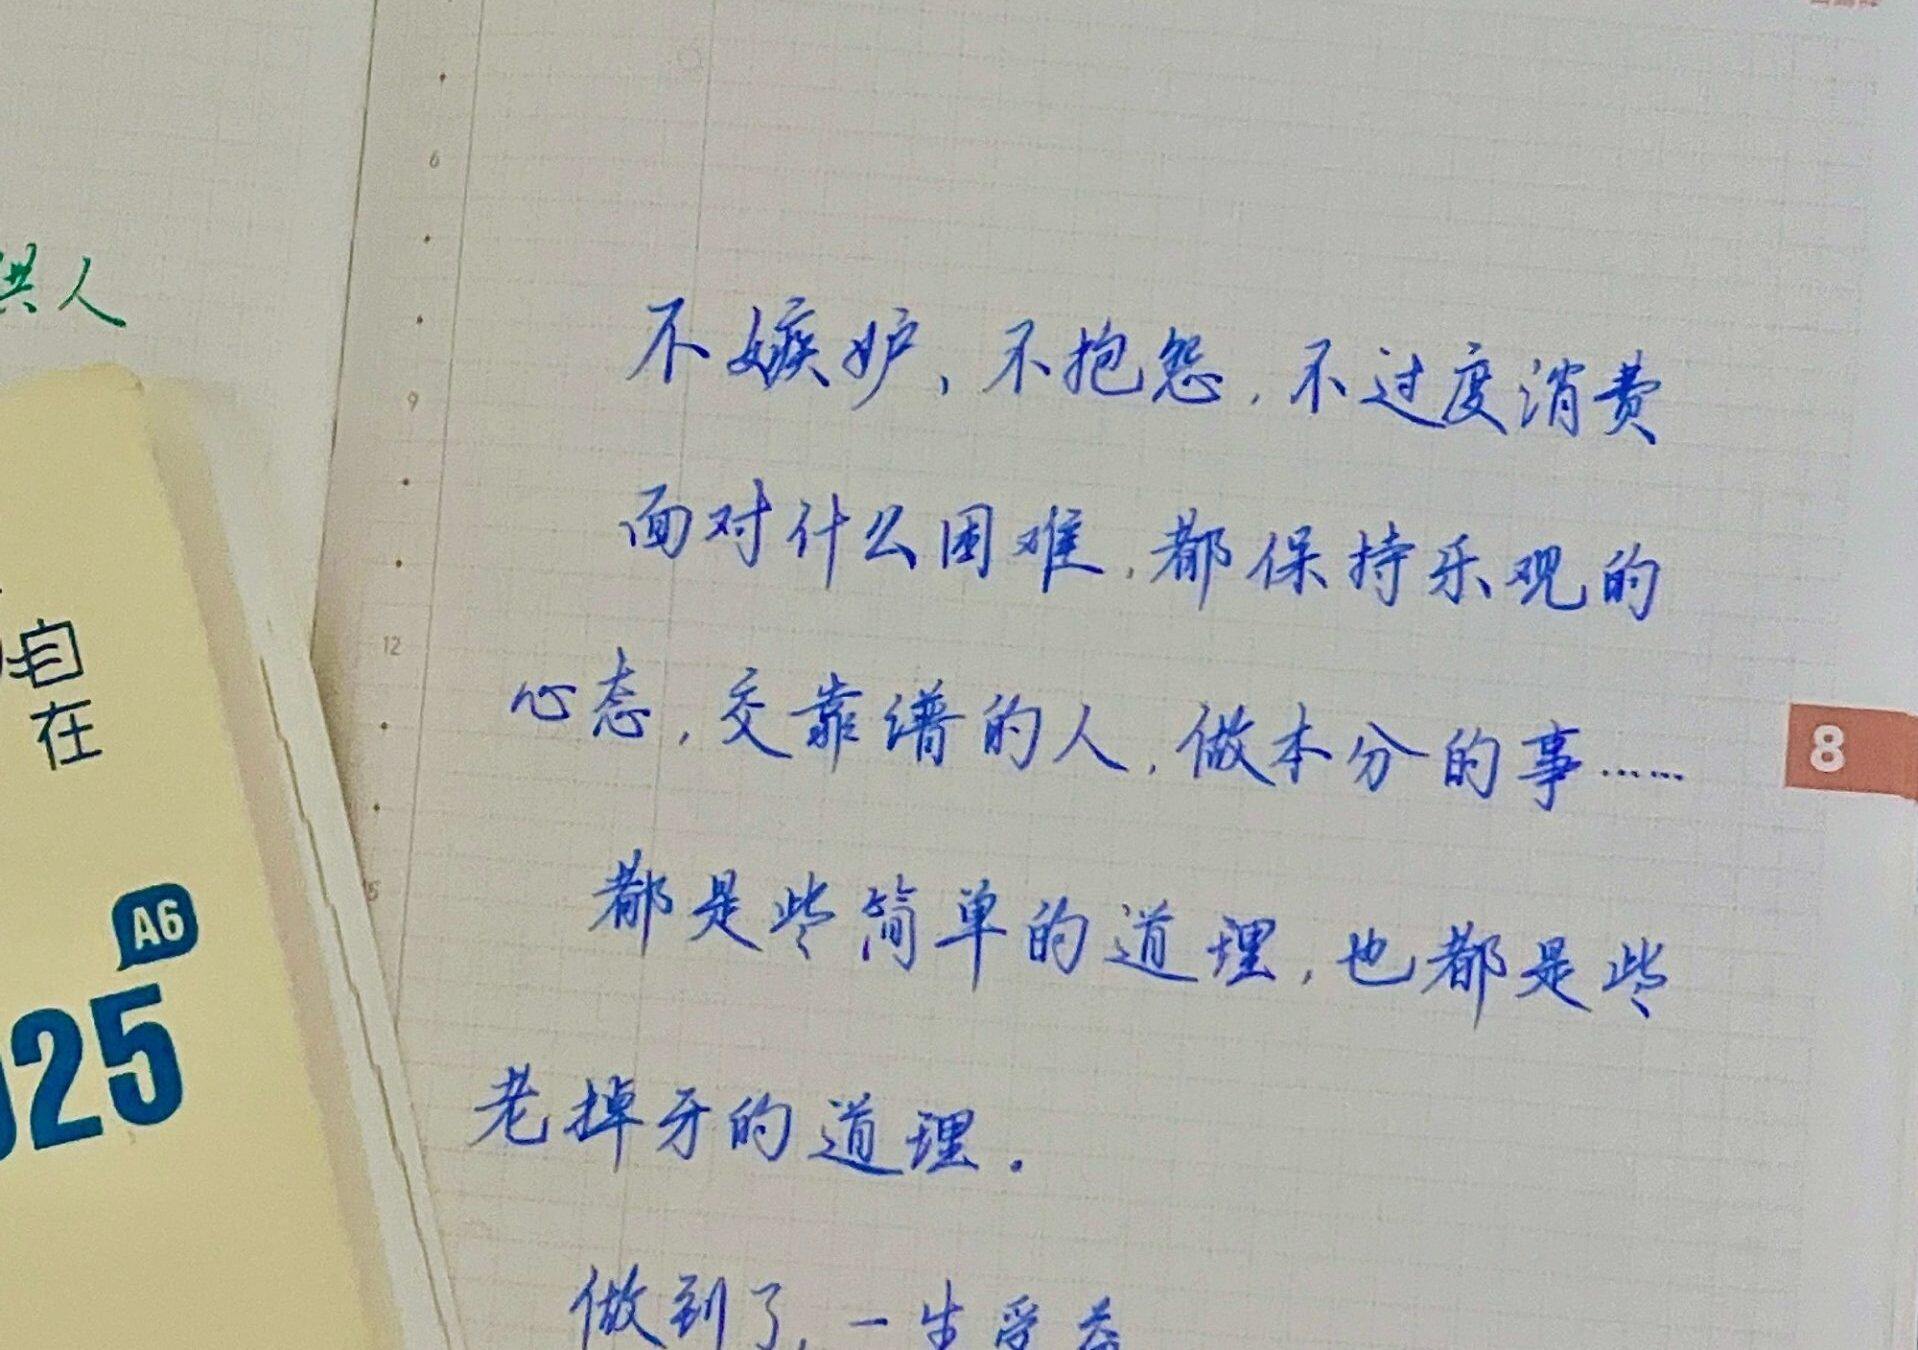 人
自
在
A6
25
6
9
12
不嫉妒,不抱怨,不过度消费
面对什么困难,都保持乐观的
心态,交靠谱的人,做本分的事……
都是些简单的道理,也都是些
老掉牙的道理.
做到了,一生受益
8